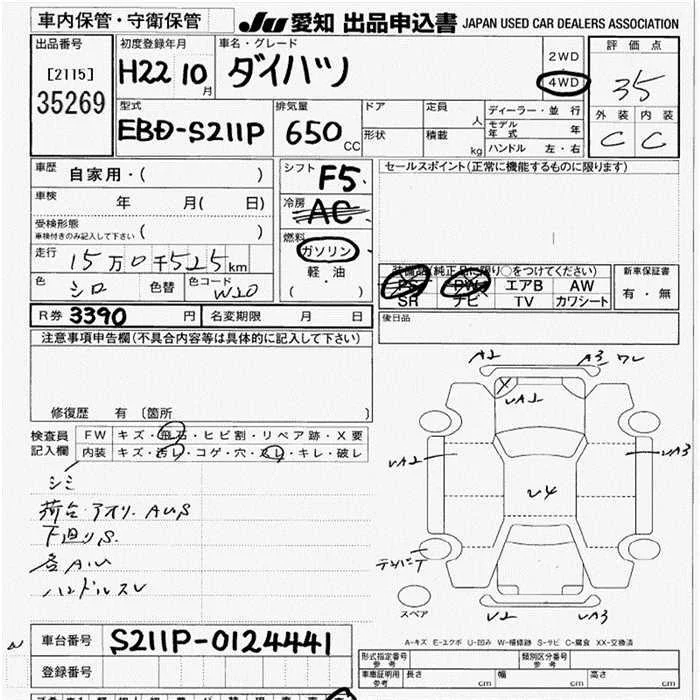 車内保管・守衛保管 JU 愛知 出品申込書 JAPAN USED CAR DEALERS ASSOCIATION
出品番号 初度登録年月 車名・グレード 2WD 評価点
[2115] H22 10月 ダイハツ 4WD 35
35269
型式 排気量 ドア 定員 人 ディーラー・並行 外装 内装
EBD-S211P 650cc 形状 積載 kg モデル年式 年 C C
ハンドル 左・右
車歴 自家用・( ) シフト F5 セールスポイント(正常に機能するものに限ります)
車検 年 月( 日) 冷房 AC
受検形態 ( )
車検付きのみ記入して下さい 燃料
走行 15万0千525km ガソリン 装備品(純正品に限り○をつけてください) 新車保証書
色 シロ 色替 色コード W20 軽油 PS PW エアB AW 有・無
( ) SR ナビ TV カワシート
R券 3390 円 名変期限 月 日 後日品
注意事項申告欄(不具合内容等は具体的に記入して下さい)
修復歴 有〔箇所 〕
検査員 FW キズ・飛石・ヒビ割・リペア跡・X要
記入欄 内装 キズ・汚レ・コゲ・穴・スレ・キレ・破レ
シミ
荷台・アオリ・AUS
下廻りS
各AU
ハンドルスレ
A2 A3 ワレ
UA2
UA2 UA3
U4
テンパT
スペア U2 UA3
A-キズ E-エクボ U-凹み W-補修跡 S-サビ C-腐食 XX-交換済
車台番号 S211P-0124441
登録番号
型式指定番号 参考 類別区分番号 参考
車庫証明用 参考 長さ cm 幅 cm 高さ cm